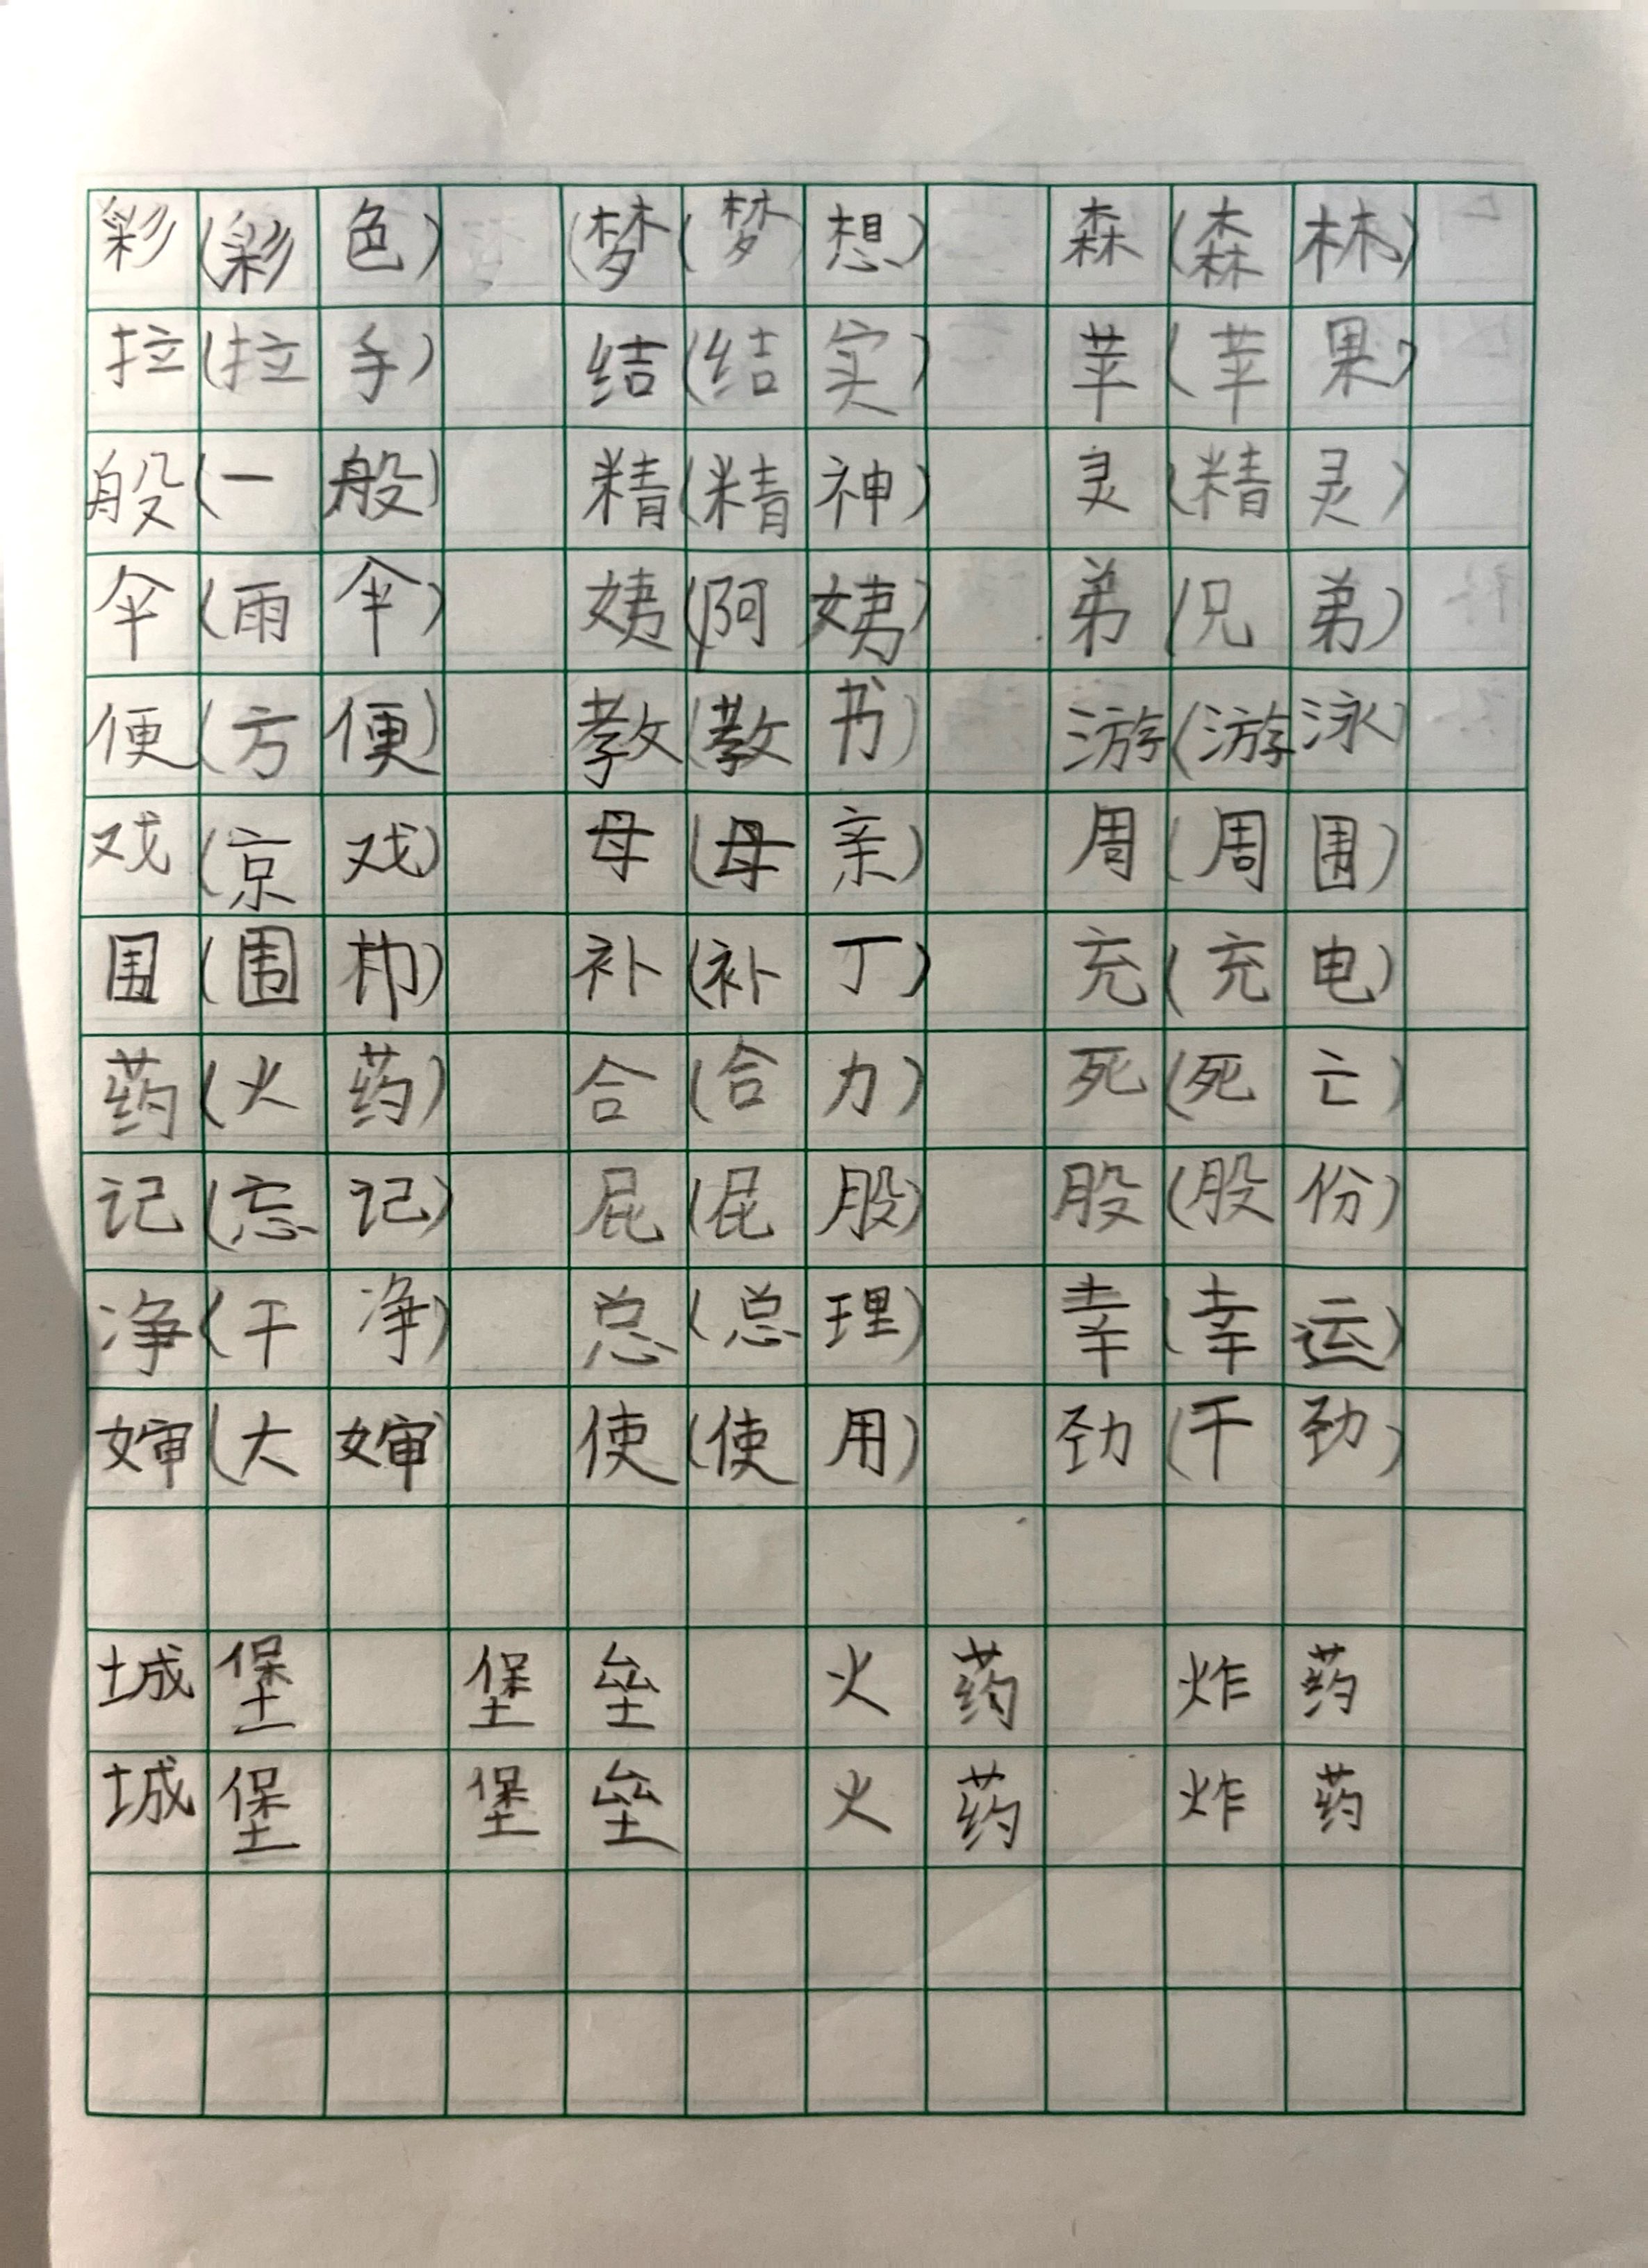 彩(彩色) (梦(梦想) 森(森林)
拉(拉手) 结(结实) 苹(苹果)
般(一般) 精(精神) 灵(精灵)
伞(雨伞) 姨(阿姨) 弟(兄弟)
便(方便) 教(教书) 游(游泳)
戏(京戏) 母(母亲) 周(周围)
围(围) 补(补丁) 充(充电)
药(火药) 合(合力) 死(死亡)
记(忘记) 屁(屁股) 股(股份)
净(干净) 总(总理) 幸(幸运)
婶(大婶) 使(使用) 劲(干劲)
城堡 堡垒 火药 炸药
城堡 堡垒 火药 炸药